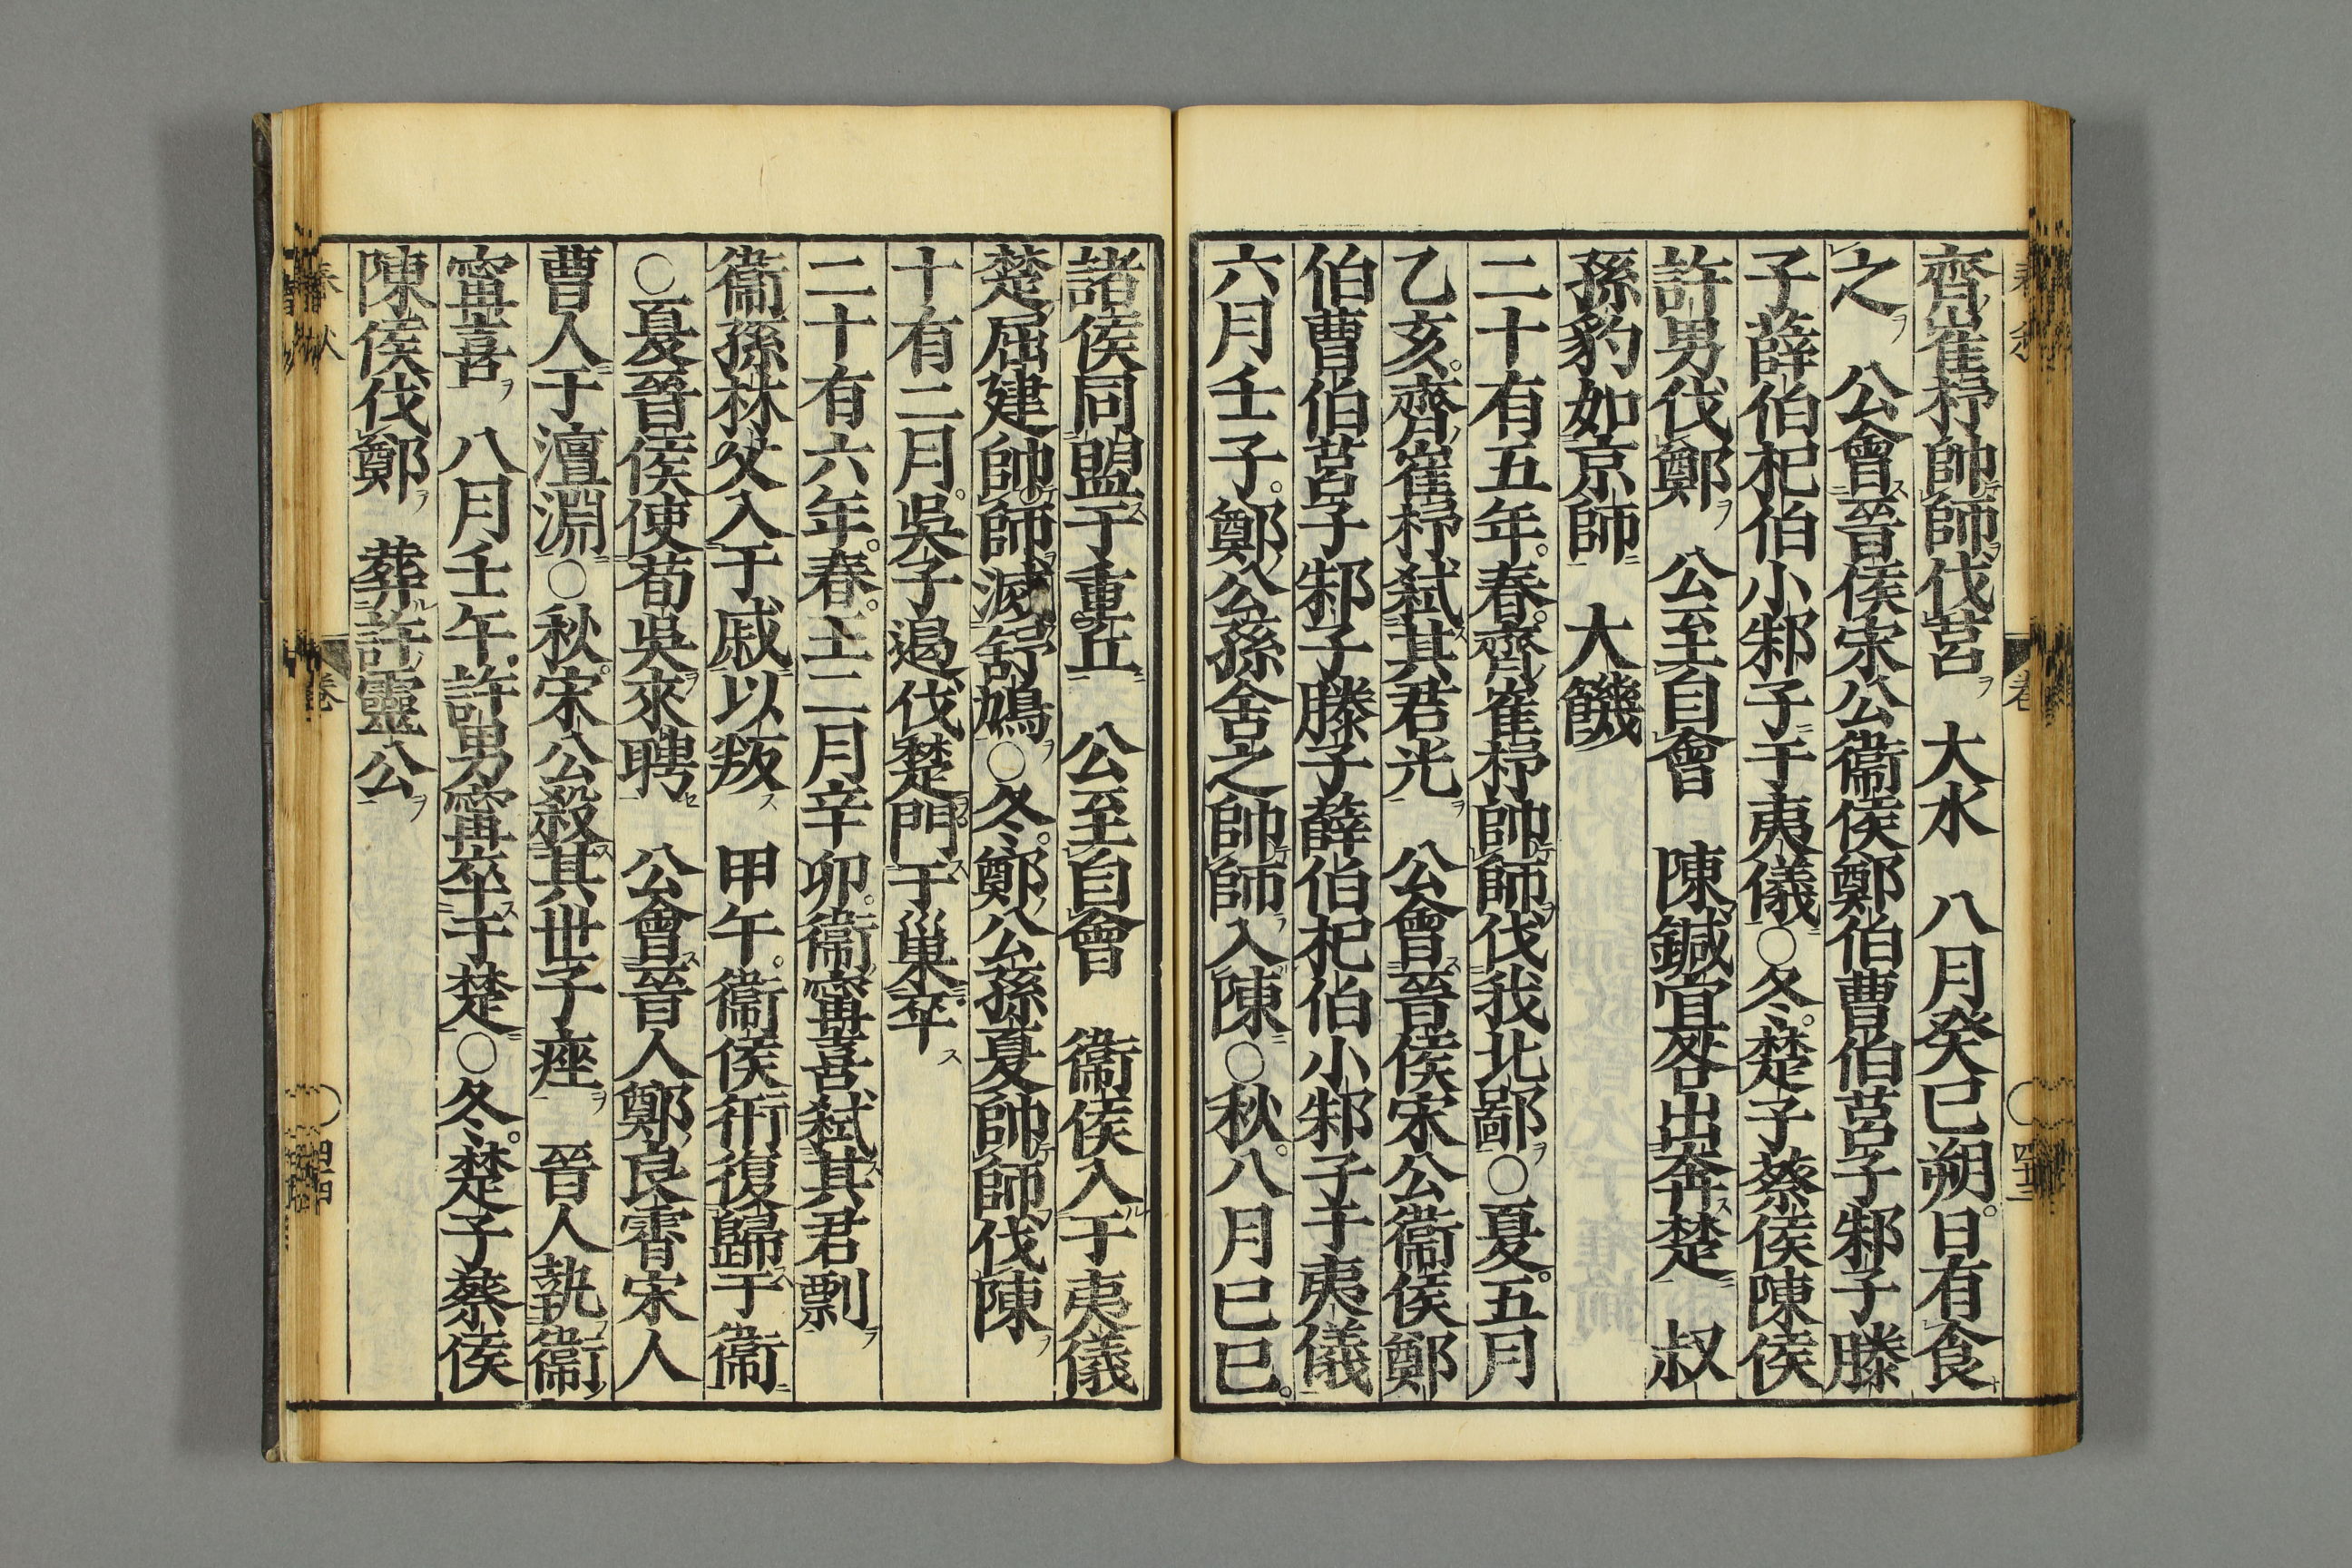 齊崔杼帥師伐莒ヲ　大水　八月癸巳朔。日有食
之ヲ　公會晉侯宋公衞侯鄭伯曹伯莒子邾子滕
子薛伯杞伯小邾子于夷儀○冬。楚子蔡侯陳侯
許男伐鄭ヲ　公至自會　陳鍼宜咎出奔楚　叔
孫豹如京師　大饑
二十有五年。春。齊崔杼帥師伐我北鄙ヲ○夏。五月
乙亥。齊崔杼弑其君光ヲ　公會晉侯宋公衞侯鄭
伯曹伯莒子邾子滕子薛伯杞伯小邾子于夷儀
六月壬子。鄭公孫舍之帥師入陳○秋。八月巳巳。
諸侯同盟于重丘　公至自會　衞侯入于夷儀
楚屈建帥師滅舒鳩ヲ○冬。鄭公孫夏帥師伐陳ヲ
十有二月。吳子遏伐楚門于巢卒ス
二十有六年。春。王二月辛卯。衞甯喜弑其君剽ヲ
衞孫林父入于戚以叛ス　甲午。衞侯衎復歸于衞
○夏晉侯使荀吳來聘セ　公會晉人鄭良霄宋人
曹人于澶淵○秋。宋公殺其世子痤ヲ　晉人執衞
甯喜ヲ　八月壬午。許男甯卒于楚○冬。楚子蔡侯
陳侯伐鄭ヲ　葬許靈公ヲ
春秋
卷
四十四